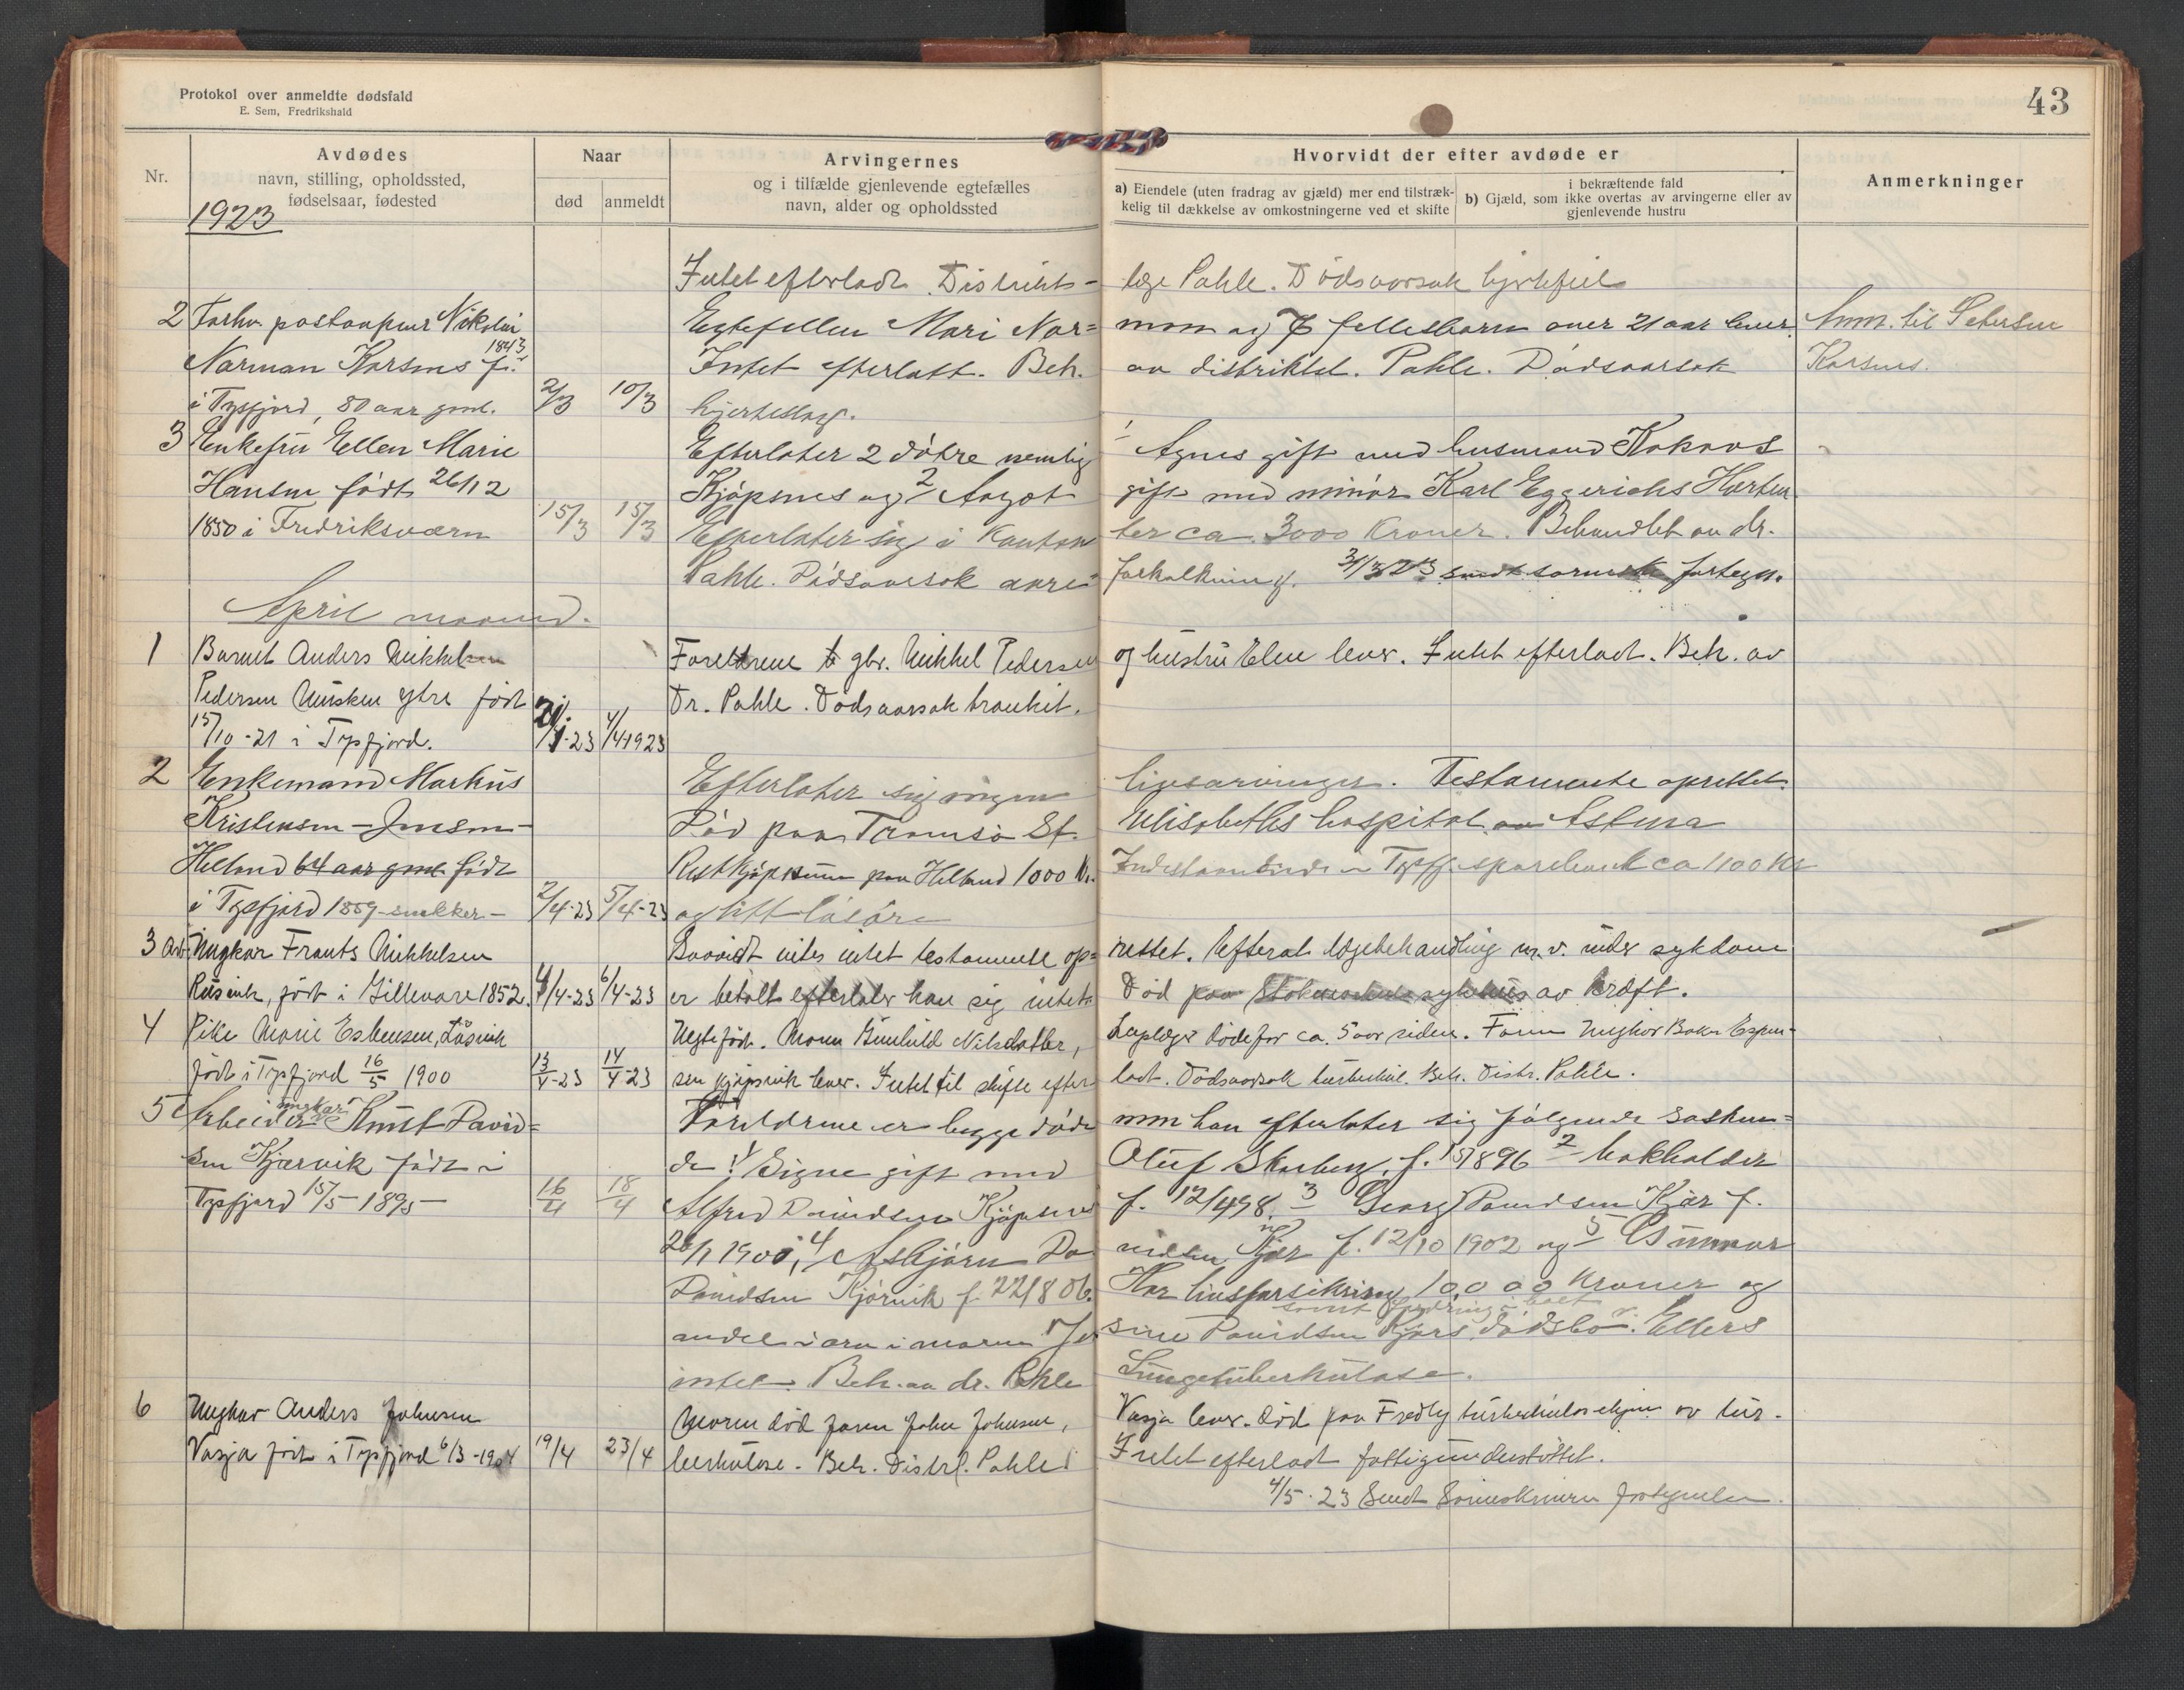 Protokol over anmeldte dødsfald
E. Sem, Fredrikshald
43
Nr.
Avdødes
navn, stilling, opholdssted,
fødselsaar, fødested
1923
Naar
død
anmeldt
Arvingernes
og i tilfælde gjenlevende egtefælles
navn, alder og opholdssted
Hvorvidt der efter avdøde er
a) Eiendele (uten fradrag av gjæld) mer end tilstræk-
kelig til dækkelse av omkostningerne ved et skifte
i bekræftende fald
b) Gjæld, som ikke overtas av arvingerne eller av
gjenlevende hustru
Anmerkninger
Intet efterladt. Distrikts-
læge Pahle. Dødsaarsak hjertefeil
2 Forhv. postaapner Nikolai
Egtefellen Mari Nor=
man og 7 fellesbarn over 21 aar lever
Anm. til Petersen
Norman Korsnes f. 1843
Intet efterlatt. Beh.
av distriktsl. Pahle. Dødsaarsak
Korsnes.
i Tysfjord, 80 aar gml. 2/3 10/3
hjerteslag.
3 Enkefru Ellen Marie
Efterlater 2 døtre nemlig
1 Agnes gift med husmand Kokaas
Hansen født 26/12
Kjøpsnes og 2 Aagot
gift med minør Karl Eggerichs
1850 i Fredriksværn 15/3 15/3
Efterlater sig i kontan
ter ca. 3000 kroner. Behandlet av dr.
Pahle. Dødsaarsak aare
forkalkning. 31/3 23 sendt sorensk. fortegn.
April maaned.
1 Barnet Anders Mikkelsen
Foreldrene gbr. Mikkel Pedersen
og hustru Elen lever. Intet efterladt. Beh. av
Pedersen Musken ytre født
Dr. Pahle. Dødsaarsak bronkit.
15/10-21 i Tysfjord. 4/4 1923
2 Enkemand Markus
Efterlater sig ingen
livsarvinger. Testamente oprettet.
Kristensen - Jensen -
Død paa Tromsø St.
Elisabeths hospital av Astma
Helland 64 aar gml. født
Restkjøpsum paa Helland 1000 kr.
Indestaaende i Tysfj. sparebank ca 1100 kr
i Tysfjord 1859 snekker - 2/4-23 5/4-23
og litt løsøre
3 Arb. Ungkar Frants Mikkelsen
Saavidt vites intet testamente op=
rettet. Efterat lægebehandling m.v. under sykdom
født i Gillevare 1852. 4/4-23 6/4-23
er betalt efterlater han sig intet.
Død paa Stokmarknes sykehus av kræft.
4 Pike Marie Esbensen,
Uegtefødt. Moren Gunhild Nilsdatter,
døde for ca. 5 aar siden. Faren Ungkar
født i Tysfjord 16/5 1900 13/4-23 14/4-23
sen Kjøpsvik lever. Intet til skifte efter
ladt. Dødsaarsak tuberkul. Beh. Distr. Pahle.
5 Arbeider ungkar Knut David=
Foreldrene er begge døde
men han efterlater sig følgende søsken=
sen Kjærvik født i
de: 1 Signe gift med
Oluf Skarberg, f. 1896 2 bokholder
Tysfjord 15/5-1895- 16/4 18/4
Alfred Davidsen Kjøpsnes
f. 12/4 98. 3 Georg Davidsen Kjær f.
26/1 1900, 4 Asbjørn Da
vidsen Kjær f. 12/10 1902 og 5 Gunnar
Davidsen Kjørvik f. 22/8 06.
Har livsforsikring 10,000 kroner og
andel i arv i moren
sine Davidsen Kjærs dødsbo. Ellers
intet. Beh. av dr. Pahle
Lungetuberkulose.
6 Ungkar Anders Johnsen
Moren død faren John Johnsen,
Vasja lever. Død paa Fredly tuberkulosehjem av tur-
Vasja født i Tysfjord 6/3-1904 19/4 23/4
berkulose. Beh. Distrl. Pahle
Intet efterladt fattigunderstøttet.
4/5-23 Sendt Sorenskriveren fortegnelse.